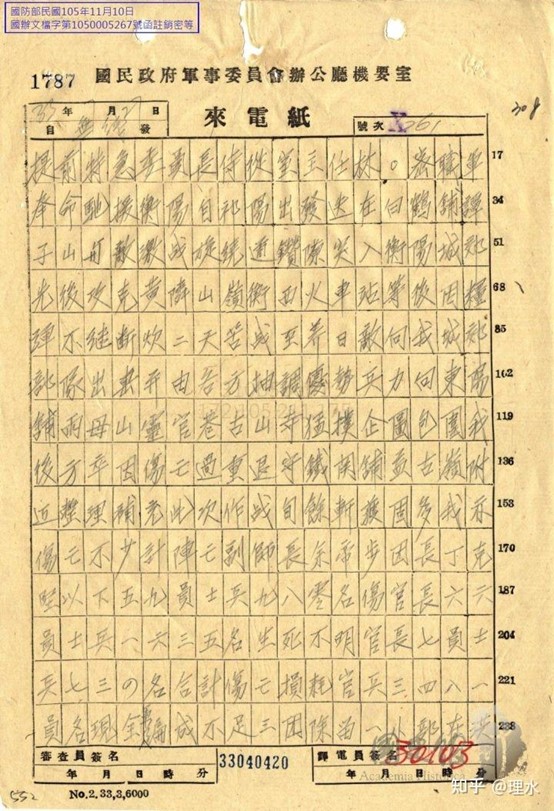 國防部民國105年11月10日
國辦文檔字第1050005267號函註銷密等
1787 國民政府軍事委員會辦公廳機要室
33年 月 日
自 發
來電紙
號次
308
提前特急委員長侍從室主任林。密職軍 17
奉命馳援衡陽自祁陽出發迭在白鶴舖譚 34
子山与敵激战旋繞道鑽隙突入衡陽城郊 51
先後攻克黄山嶺衡西火車站等後因糧 68
彈不继断炊二天苦战至养日敵向我城郊 85
部隊出击并由各方抽調優勢兵力向東陽 102
舖雨母山靈官巷古山寺猛撲企圖包圍我 119
後方卒因傷亡過重退守鐵関舖孟古嶺附 136
近整理補充此次作战自餘斬獲固多我亦 153
傷亡不少計陣亡副師長余帝步团長丁克 170
坚以下五九員士兵九八零名傷官長六六 187
員士兵一六三五名生死不明官長七員士 204
兵七三0名合計傷亡損耗官兵三四八一 221
員名現全編成不足三团除留一小部在 238
審查員簽名
年 月 日 時 分
33040420
譯電員簽名
年 月 日 時
30103
Academia Historica
No.2.33,3,6000
552
知乎 @理水